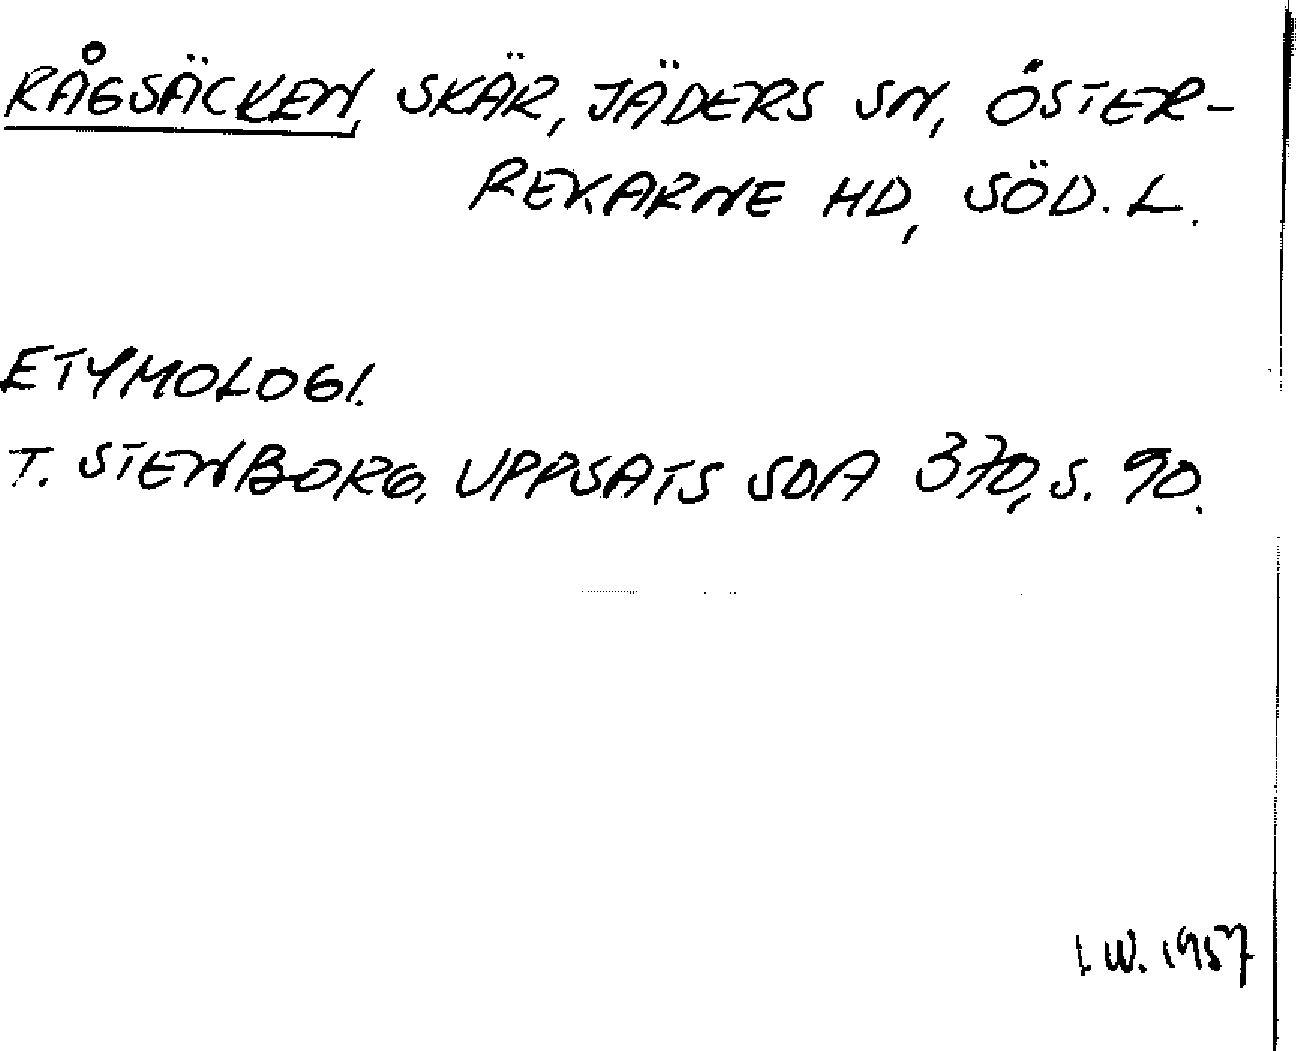 RÅGSÄCKEN, SKÄR, JÄDERS SN, ÖSTER-
REKARNE HD, SÖD. L.
ETYMOLOGI.
T. STENBORG, UPPSATS SOA 370, S. 90.
I. W. 1957